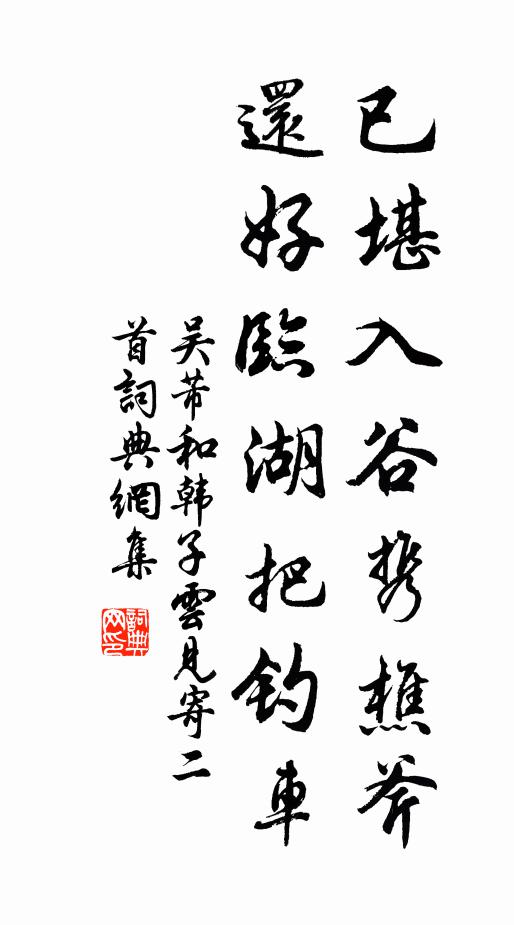 已堪入谷携樵斧
還好臨湖把钓車
吴芾和韩子雲見寄二
首詞典網集
詞典
网印